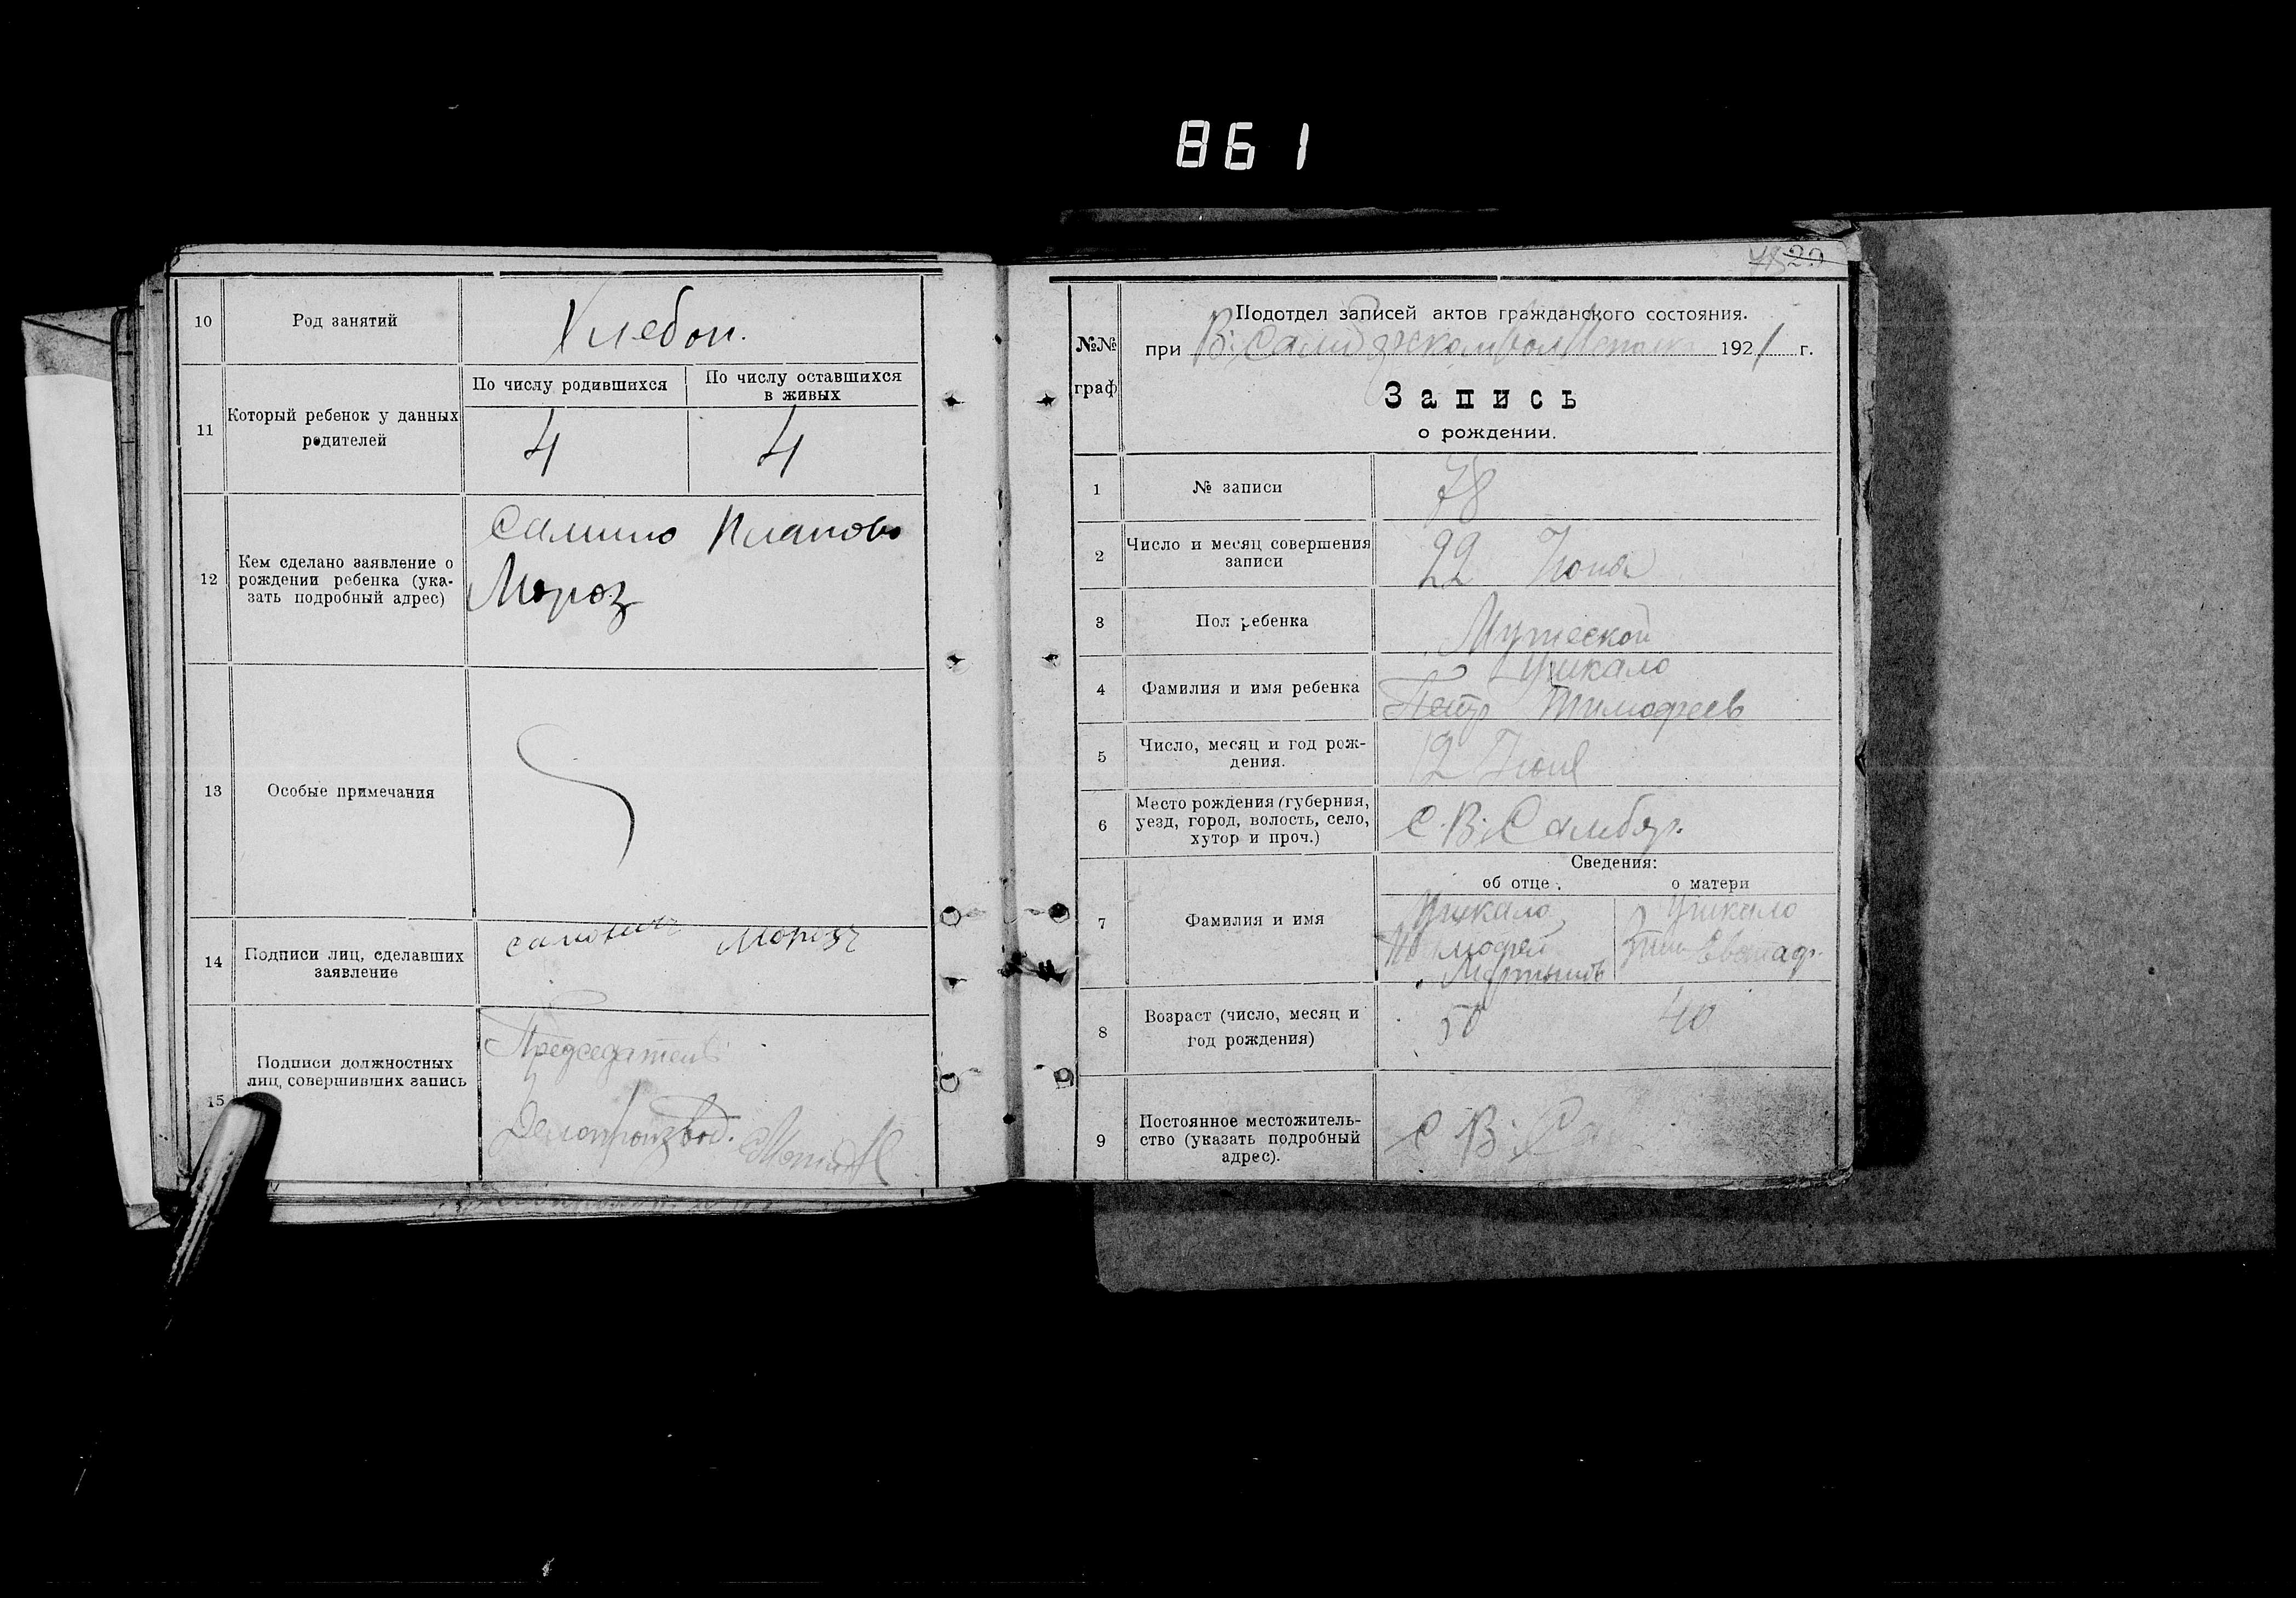 861
10
Род занятий
Хлебоп.
11
Который ребенок у данных
родителей
По числу родившихся
По числу оставшихся
в живых
4
4
12
Кем сделано заявление о
рождении ребенка (ука-
зать подробный адрес)
Мороз
13
Особые примечания
14
Подписи лиц, сделавших
заявление
Морозъ
15
Подписи должностных
лиц, совершивших запись
Председатель
Делопроизвод.
29
№№
граф
Подотдел записей актов гражданского состояния.
при 1921 г.
Запись
о рождении.
1
№ записи
78
2
Число и месяц совершения
записи
22 Июня
3
Пол ребенка
Мужеской
4
Фамилия и имя ребенка
Чикало
Петр Тимофеев
5
Число, месяц и год рож-
дения.
12 Июня
6
Место рождения (губерния,
уезд, город, волость, село,
хутор и проч.)
С. В. Самбур.
Сведения:
об отце
о матери
7
Фамилия и имя
Чикало
Тимофей
Мартынов
Чикало
8
Возраст (число, месяц и
год рождения)
50
40
9
Постоянное местожитель-
ство (указать подробный
адрес).
С. В. Са